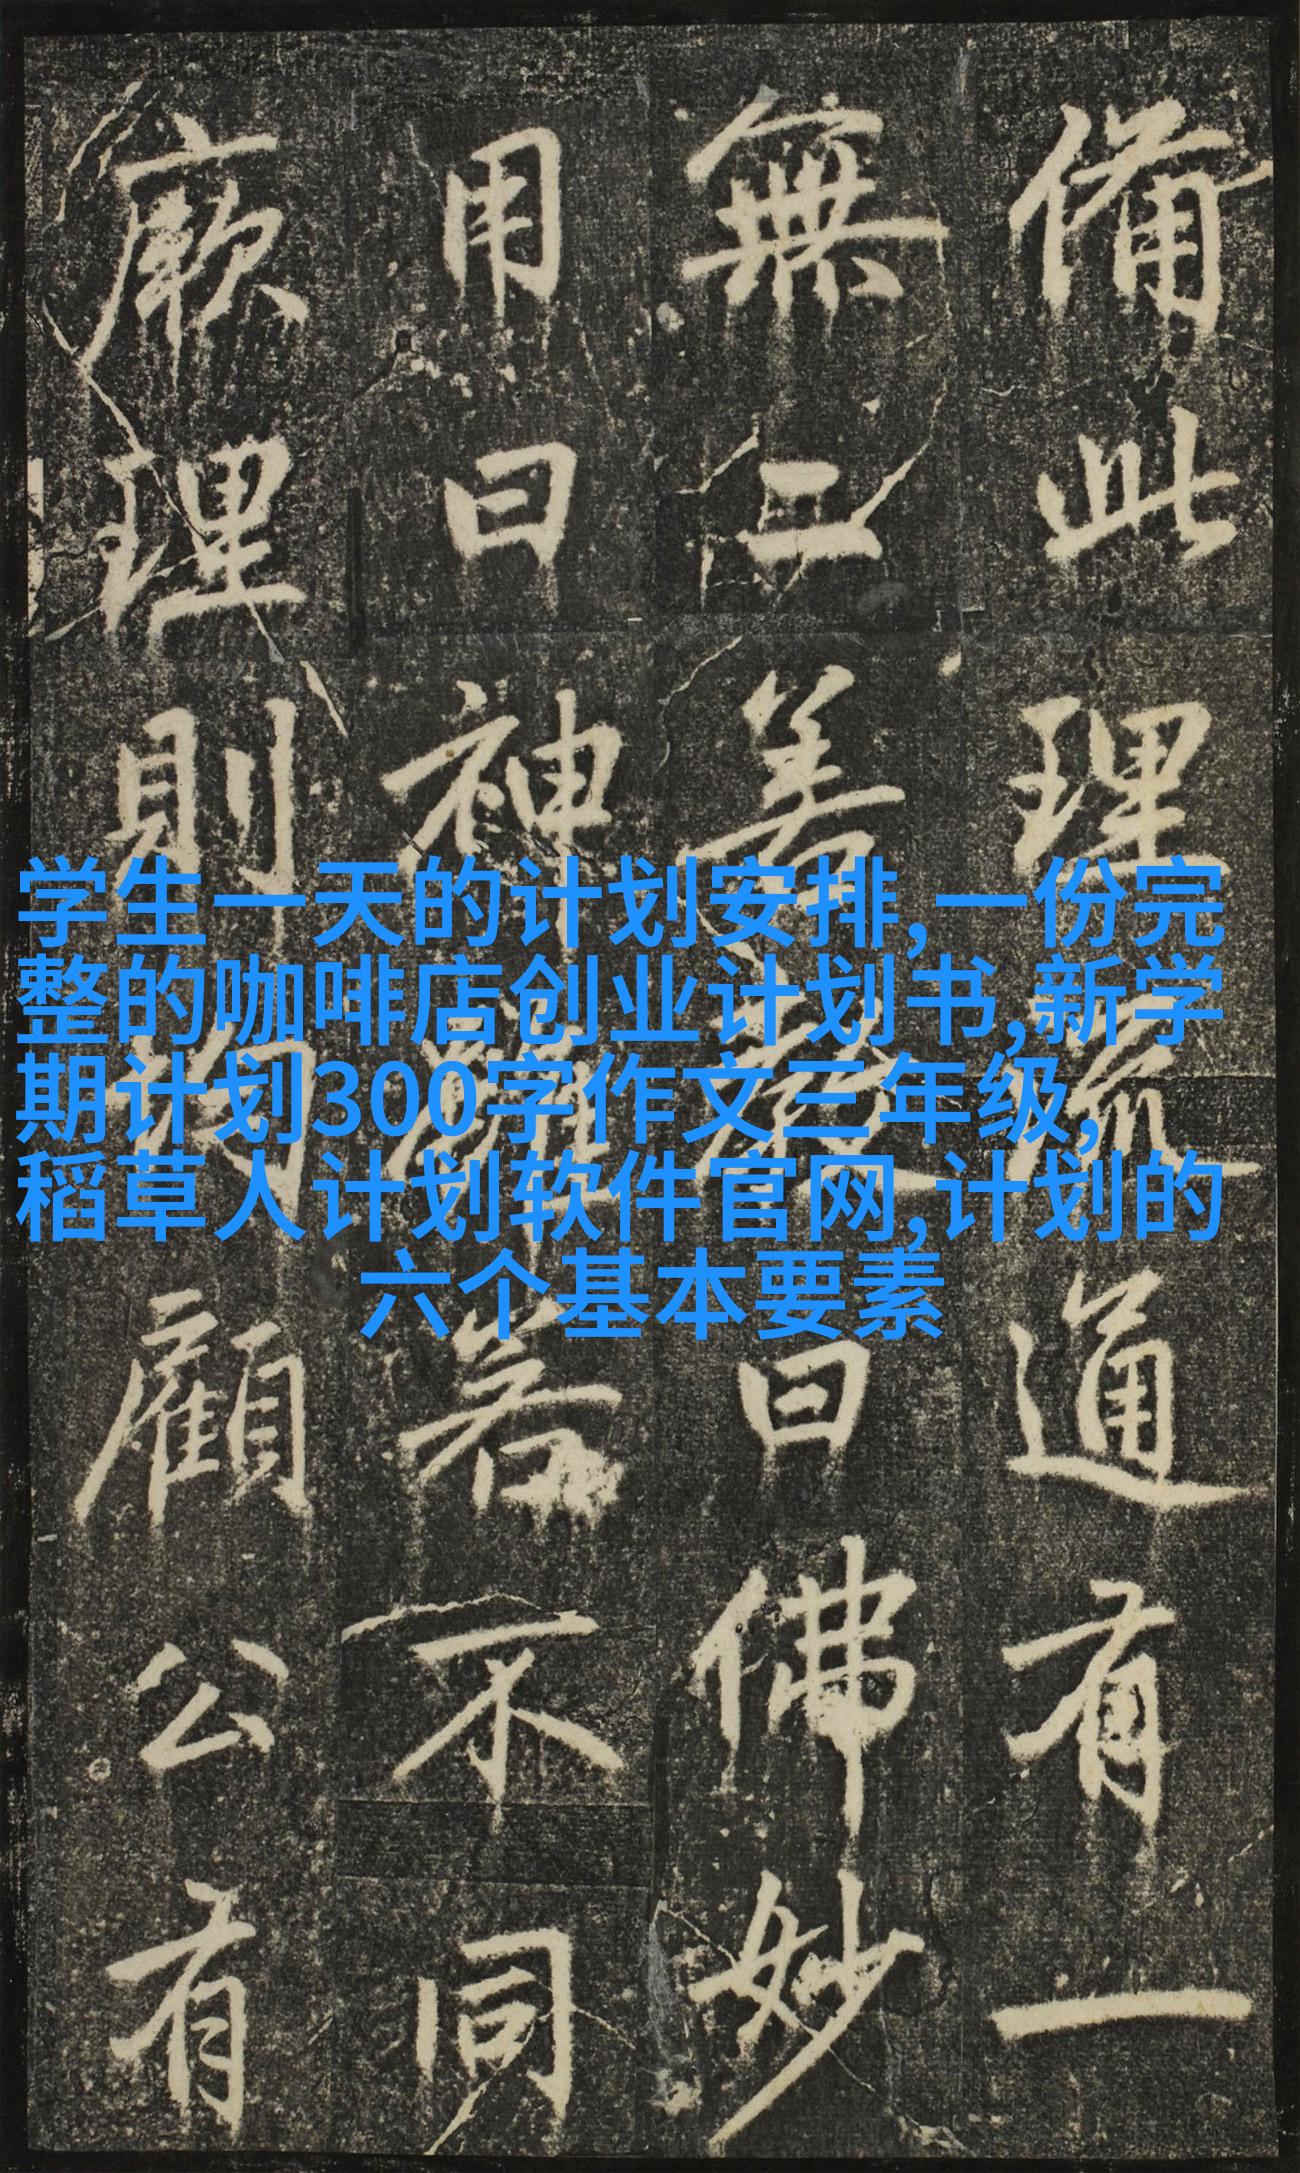 備此理通有一
無二善教曰佛妙
用曰神雖若不同
厥理則均顧公有
学生一天的计划安排,一份完
整的咖啡店创业计划书,新学
期计划300字作文三年级,
稻草人计划软件官网,计划的
六个基本要素